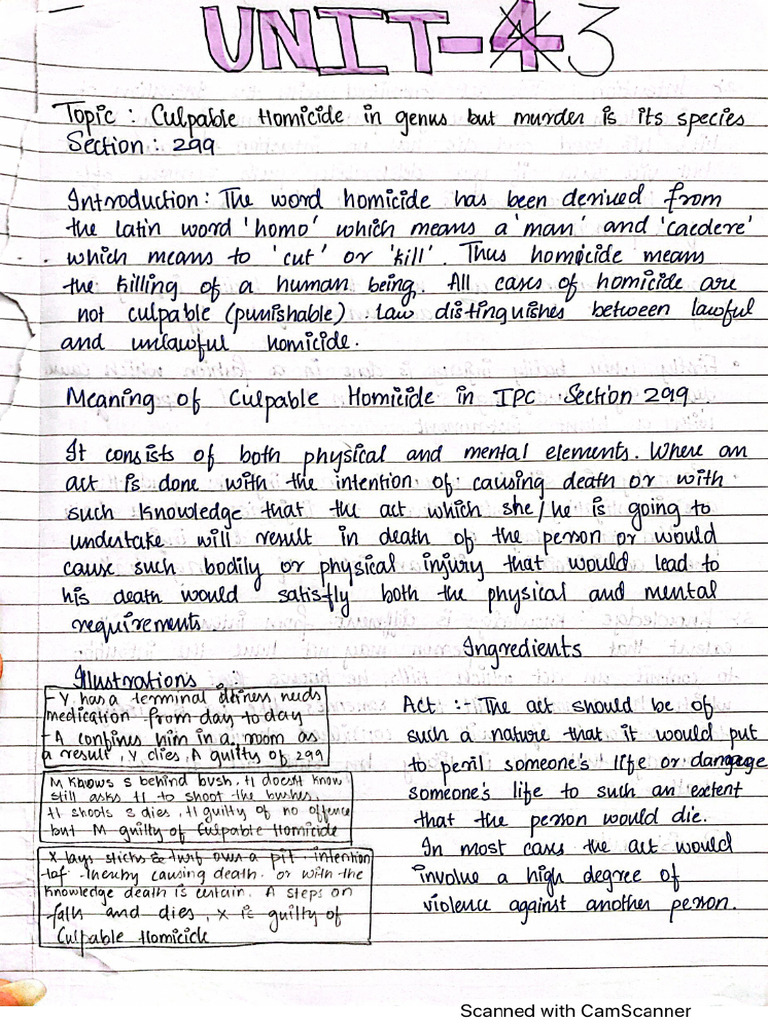 UNIT-4 3
Topic : Culpable Homicide in genus but murder is its species
Section : 299
Introduction : The word homicide has been derived from
the latin word 'homo' which means a 'man' and 'caedere'
which means to 'cut' or 'kill'. Thus homicide means
the killing of a human being. All cases of homicide are
not culpable (punishable). Law distinguishes between lawful
and unlawful homicide.
Meaning of Culpable Homicide in IPC Section 299
It consists of both physical and mental elements. Where an
act is done with the intention of causing death or with
such knowledge that the act which she/he is going to
undertake will result in death of the person or would
cause such bodily or physical injury that would lead to
his death would satisfly both the physical and mental
requirements
Illustrations
- Y has a terminal illness, needs
medication from day to day
- A confines him in a room as
a result, Y dies, A guilty of 299
M knows S behind bush. H doesnt know
still asks H to shoot the bushes,
H shoots S dies, H guilty of no offence
but M guilty of Culpable Homicide
X lays sticks & turf over a pit intention
of thereby causing death. or with the
knowledge death is certain. A steps on
falls and dies, X is guilty of
Culpable Homicide
Ingredients
Act :- The act should be of
such a nature that it would put
to peril someone's life or damage
someone's life to such an extent
that the person would die.
In most cases the act would
involve a high degree of
violence against another person.
Scanned with CamScanner